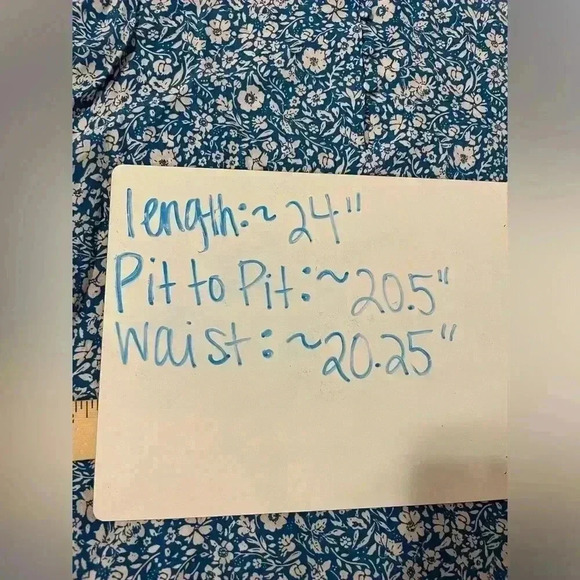 length:~ 24"
Pit to Pit:~20.5"
Waist:~20.25"